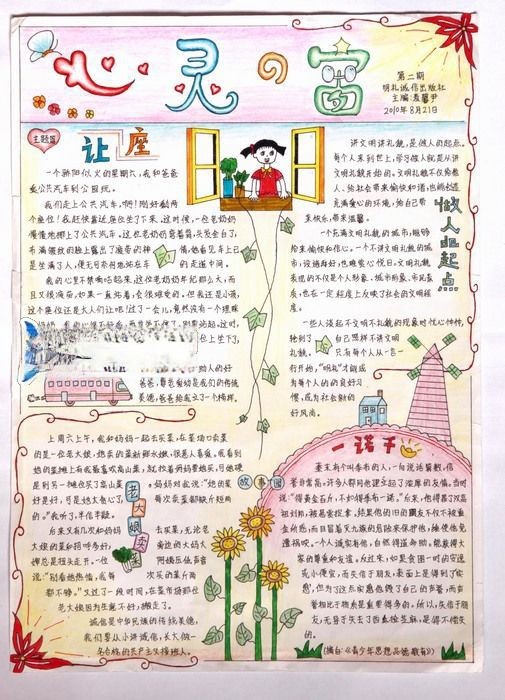 心灵の富
第二期
明礼诚信出版社
主编:麦馨尹
2010年8月21日
主题篇
让座
一个骄阳似火的星期六,我和爸爸
乘公共汽车到公园玩。
我们走上公共汽车,啊!刚好剩两
个座位!我赶快靠近座位坐了下来,这时候,一位老奶奶
慢慢地挪上了公共汽车。这位老奶奶弯着背,头发全白了,
布满皱纹的脸上露出了疲劳的神情,她看见车上已
是坐满了人,便无可奈何地站在车的走道中间。
我的心里不禁响起来,这位老奶奶年纪那么大,而
且又很疲劳,如果一直站着,会很难受的。但我还是小孩,
这个座位还是大人们让吧!过了一会儿,竟然没有一个理睬
位上坐下,
助人的好
爸爸,尊老爱幼是我们的传统
美德,爸爸给我上了一个榜样。
做人的起点
讲文明讲礼貌,是做人的起点。
每个人来到世上,学习做人就是从讲
文明礼貌开始的。文明礼貌不仅给家
人、给社会带来愉快和谐,也能创造
充满爱心的环境,给自己带
来快乐,带来温馨。
一个充满文明礼貌的城市,能够
给来愉悦和信心。一个不讲文明礼貌的城
市,设施再好,也难赏心悦目。文明礼貌
表现的不仅是个人形象、城市形象、市民素
质,也在一定程度上反映了社会的文明程
度。
一些人谈起不文明不礼貌的现象时忧心忡忡,
独到了自己照样不讲文明
礼貌。只有每个人从一言一
行开始,“明礼”才能成
为每个人的的良好习
惯,成为社会新的
好风尚。
老大娘卖菜
上周六上午,我和妈妈一起去买菜,在菜场门口卖菜
的是一位老大娘,她卖的菜新鲜水嫩,很惹人喜爱。我看到
她的菜摊上有我最喜欢高山菜,就拉着妈妈要她买,可她硬
是到另一摊位买了高山菜妈妈对我说:“她的菜
好是好,可是她太黑心了,每次卖菜都缺斤短两
的。”我听了,半信半疑。
后来又有几次和妈妈去买菜,无论老
大娘的菜和招呼多好,旁边的大妈大
婶总是扭头走开。一位阿姨压低声音
说:“别看她热情,我每次买的菜斤两
都不够。”又过了一段时间,在菜市场那位
老大娘因为生意不好,搬走了。
诚信是中华民族的传统美德,
我们要从小讲诚信,长大做一
名合格的共产主义接班人。
故事园
一诺千
秦末有个叫季布的人,一向说话算数,信
誉非常高,许多人都同他建立起了浓厚的友情。当时
说:“得黄金百斤,不如得季布一诺。”后来,他得罪了汉高
祖刘邦,被悬赏捉拿。结果他的旧日的朋友不仅不被重
金所惑,而且冒着灭九族的危险来保护他,终使他免
遭祸殃。一个人诚实有信,自然得道多助,能获得大
家的尊重和友谊。反过来,如果贪图一时的安逸
或小便宜,而失信于朋友,表面上是得到了“实
惠”,但为了这点实惠他毁了自己的声誉,而声
誉相比于物质是重要得多的。所以,失信于朋
友,无异于失去了西瓜捡芝麻,是得不偿失
的。
(摘自:《青少年思想品德教育》)